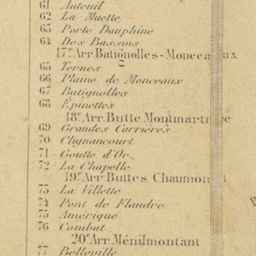 61 Auteuil
62 La Muette
63 Porte Dauphine
64 Des Bassins
17e Arr Batignolles-Monceaux
65 Ternes
66 Plaine de Monceaux
67 Batignolles
68 Epinettes
18e Arr Butte Montmartre
69 Grandes Carrières
70 Clignancourt
71 Goutte d'Or
72 La Chapelle
19e Arr Buttes Chaumont
73 La Villette
74 Pont de Flandre
75 Amérique
76 Combat
20e Arr Ménilmontant
77 Belleville